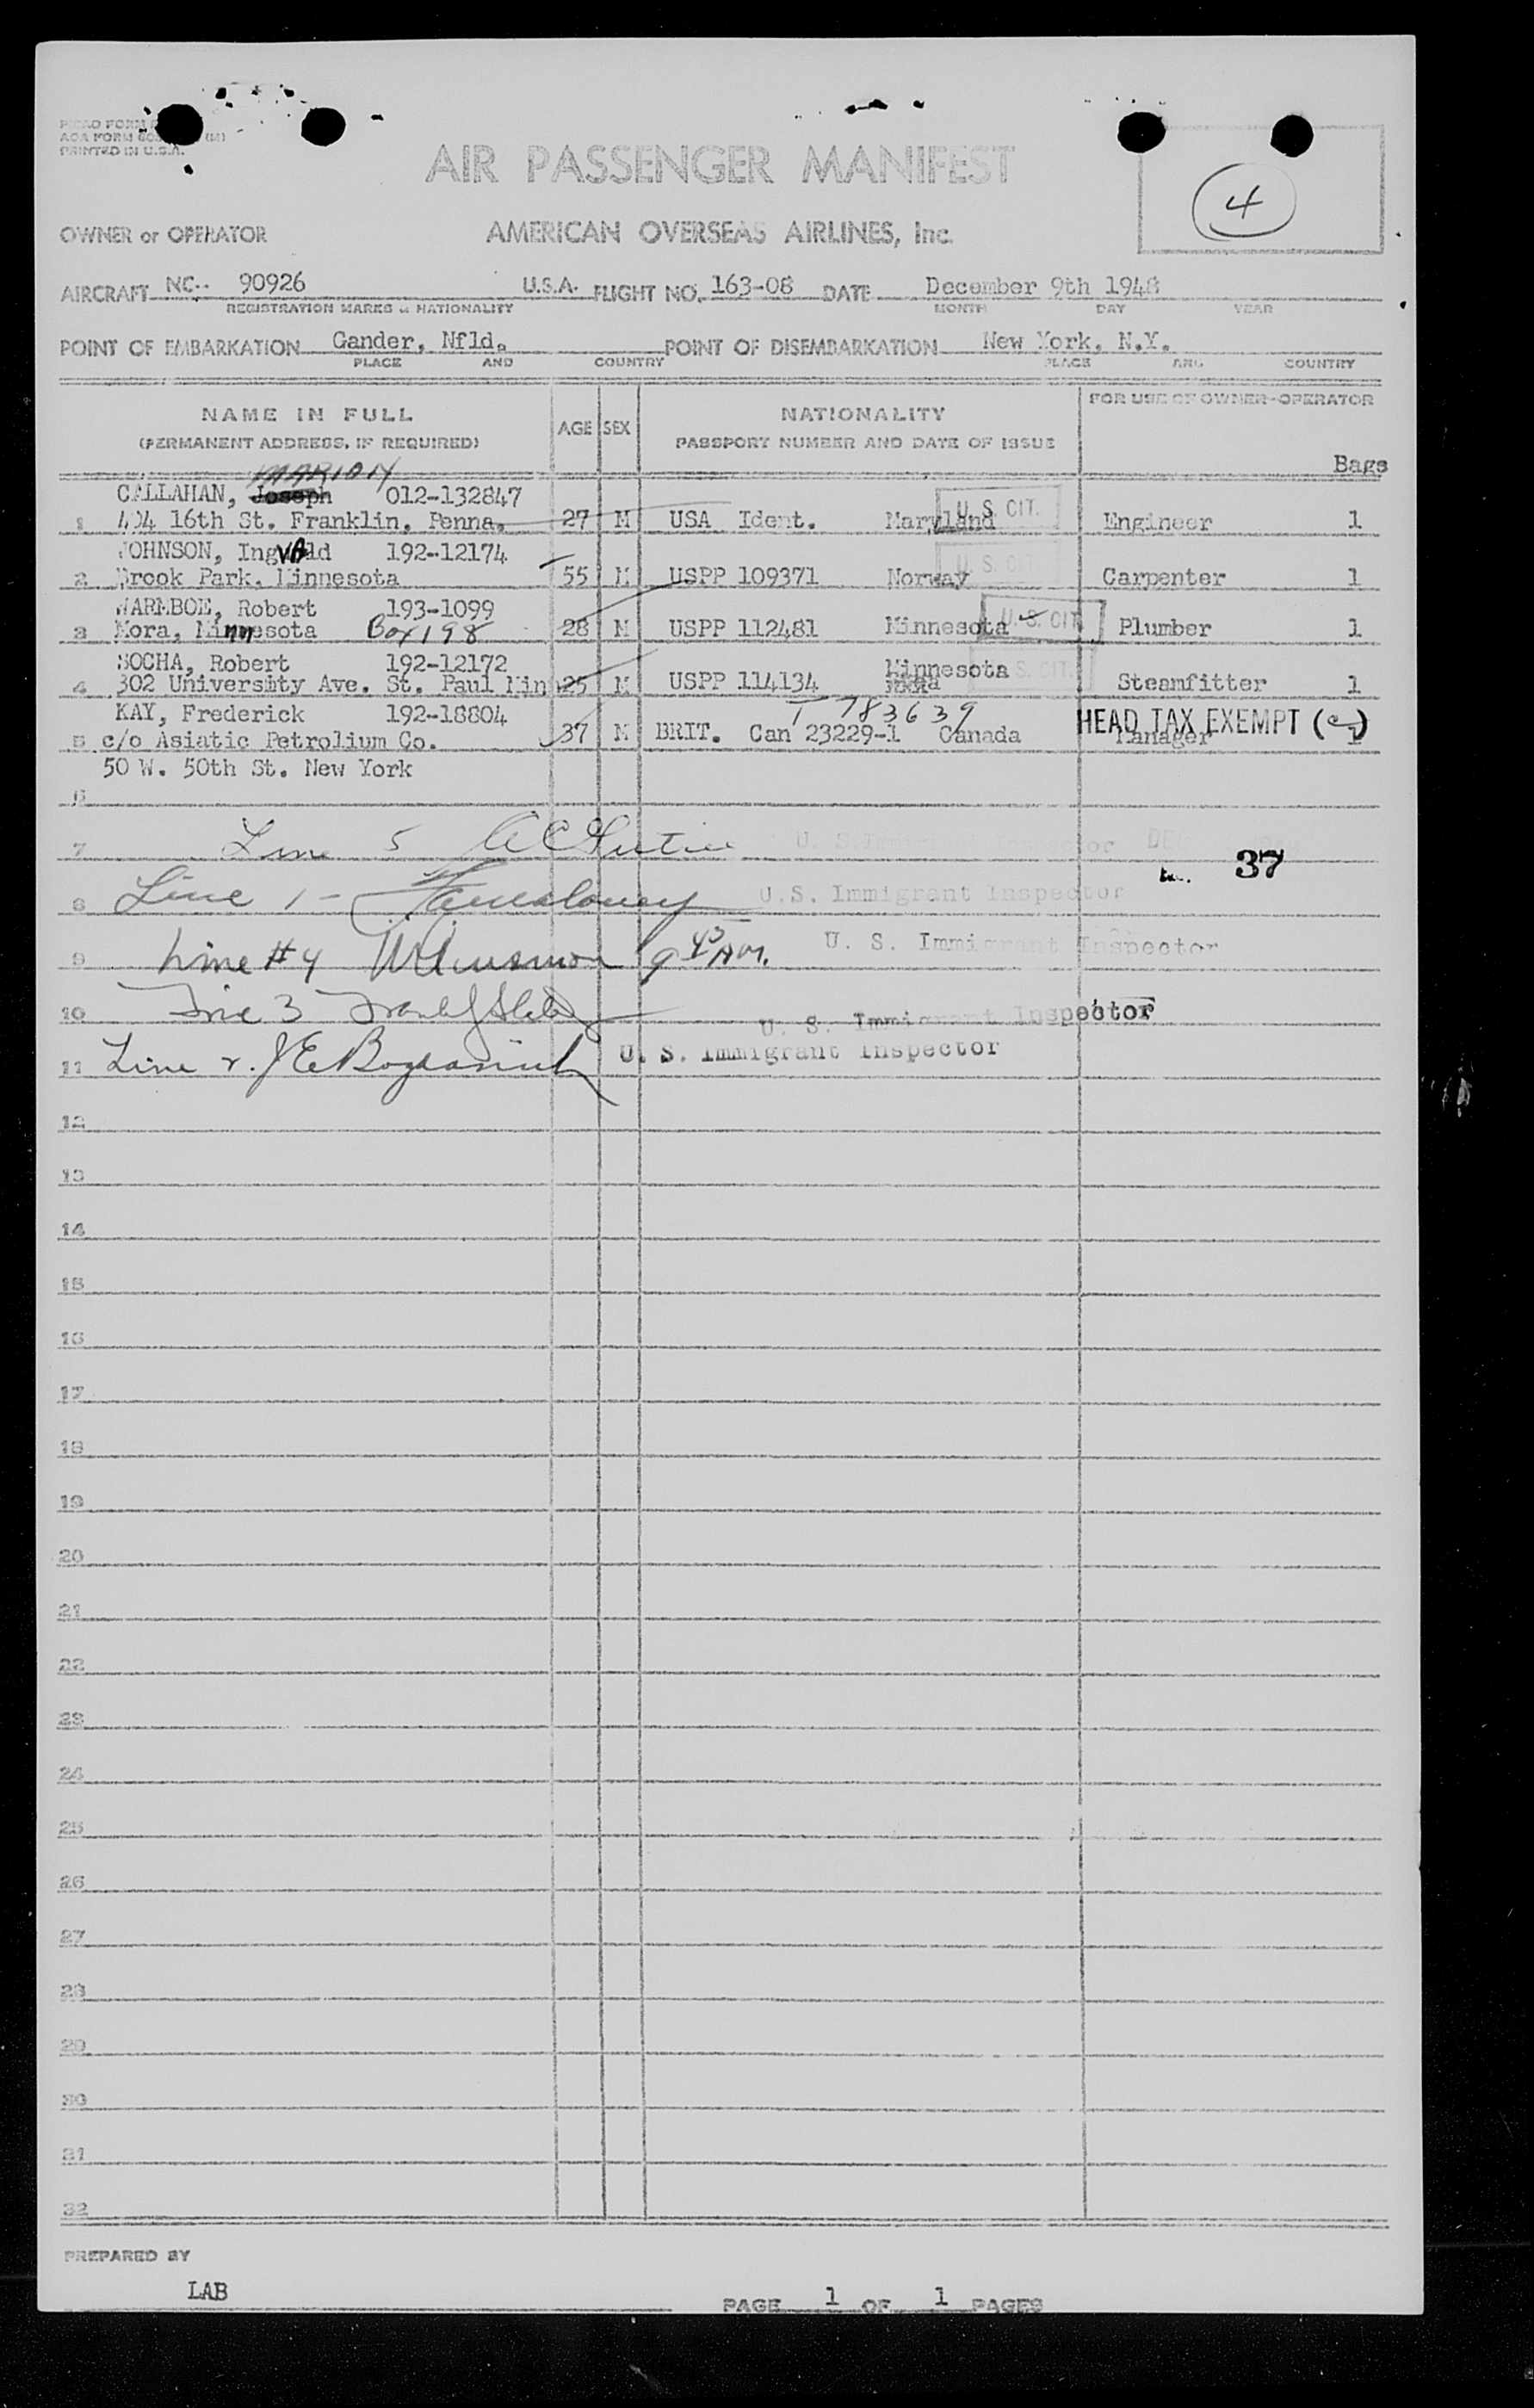 PRINTED IN U.S.A.
AIR PASSENGER MANIFEST
4
OWNER or OPERATOR AMERICAN OVERSEAS AIRLINES, Inc.
AIRCRAFT NC-- 90926 U.S.A. FLIGHT NO. 163-08 DATE December 9th 1948
REGISTRATION MARKS & NATIONALITY MONTH DAY YEAR
POINT OF EMBARKATION Gander, Nfld. POINT OF DISEMBARKATION New York, N.Y.
PLACE AND COUNTRY PLACE AND COUNTRY
NAME IN FULL AGE SEX NATIONALITY FOR USE OF OWNER-OPERATOR
(PERMANENT ADDRESS, IF REQUIRED) PASSPORT NUMBER AND DATE OF ISSUE
Bags
MARION
CALLAHAN, Joseph 012-132847 U.S. CIT.
1 404 16th St. Franklin, Penna. 27 M USA Ident. Maryland Engineer 1
JOHNSON, Ingvald 192-12174 U.S. CIT.
2 Brook Park, Minnesota 55 M USPP 109371 Norway Carpenter 1
Robert 193-1099 U.S. CIT.
3 Mora, Minnesota Box 198 28 M USPP 112481 Minnesota Plumber 1
SOCHA, Robert 192-12172 Minnesota U.S. CIT.
4 302 University Ave. St. Paul Min 25 M USPP 114134 Steamfitter 1
KAY, Frederick 192-18804 T 783639 HEAD TAX EXEMPT
5 c/o Asiatic Petrolium Co. 37 M BRIT. Can 23229-1 Canada Manager 1
50 W. 50th St. New York
6
7 Line 5 U. S. Immigrant Inspector
37
8 Line 1 - U.S. Immigrant Inspector
9 Line #4 9 45 AM. U. S. Immigrant Inspector
10 Line 3 U. S. Immigrant Inspector
11 Line 2. U. S. Immigrant Inspector
12
13
14
15
16
17
18
19
20
21
22
23
24
25
26
27
28
29
30
31
32
PREPARED BY
LAB
PAGE 1 OF 1 PAGES